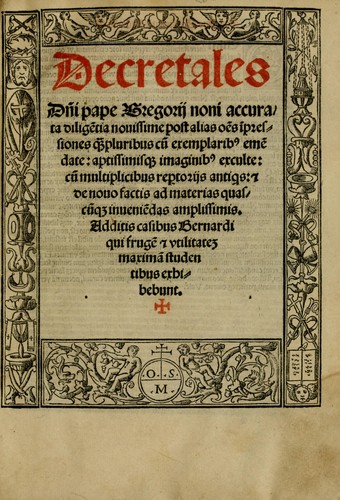 Decretales
Dñi pape Gregorij noni accura/
ta diligẽtia nouissime post alias oẽs ĩpres-
siones q̃pluribus cũ exemplarib⁹ emẽ
date: aptissimisq; imaginib⁹ exculte:
cũ multiplicibus reptorijs antiqs: ⁊
de nouo factis ad materias quas/
cũq; inueniẽdas amplissimis.
Additis casibus Bernardi
qui frugẽ ⁊ vtilitatez
maximã studen
tibus exhi-
bebunt.
O S
M